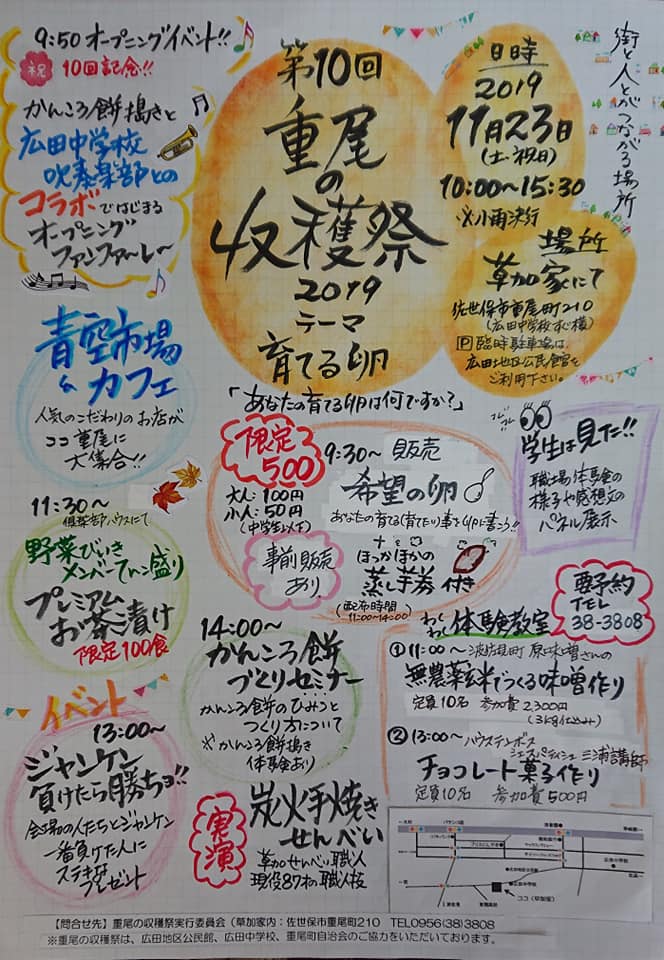 9:50 オープニングイベント!!
祝 10回記念!!
かんころ餅搗きと
広田中学校
吹奏楽部との
コラボではじまる
オープニング
ファンファーレー
第10回
重尾
の
収穫祭
2019
テーマ
育てる卵
日時
2019
11月23日
(土・祝日)
10:00〜15:30
※小雨決行
街と人とがつながる場所
場所
草加家にて
佐世保市重尾町210
(広田中学校すぐ横)
P臨時駐車場は、
広田地区公民館を
ご利用下さい。
青空市場
&カフェ
人気のこだわりのお店が
ココ重尾に
大集合!!
「あなたの育てる卵は何ですか?」
限定
500
9:30〜 販売
大人:100円
小人:50円
(中学生以下)
希望の卵
あなたの育てる(育てたい)事を卵に書こう!!
事前販売
あり
ほっかほかの
蒸し芋 付き
(配布時間)
11:00〜14:00
学生は見た!!
職場体験の
様子や感想文の
パネル展示
11:30〜
倶楽部ハウスにて
野菜びいき
メンバーてんこ盛り
プレミアム
お茶漬け
限定100食
14:00〜
かんころ餅
づくりセミナー
かんころ餅のひみつと
つくり方について
※かんころ餅搗き
体験あり
わくわく体験教室
要予約
TEL
38-3808
①11:00〜 波佐見町 原味噌さんの
無農薬玄米でつくる味噌作り
定員10名 参加費2,300円
(3kg仕込み)
②13:00〜 ハウステンボス
シェフパティシエ 三浦講師
チョコレート菓子作り
定員10名 参加費500円
イベント
13:00〜
ジャンケン
負けたら勝ちョ!!
会場の人たちとジャンケン
一番負けた人に
ステキな
プレゼント
実演
炭火手焼き
せんべい
草加せんべい職人
現役87才の職人技
ココ(草加家)
【問合せ先】重尾の収穫祭実行委員会(草加家内:佐世保市重尾町210 TEL0956(38)3808
※重尾の収穫祭は、広田地区公民館、広田中学校、重尾町自治会のご協力をいただいております。